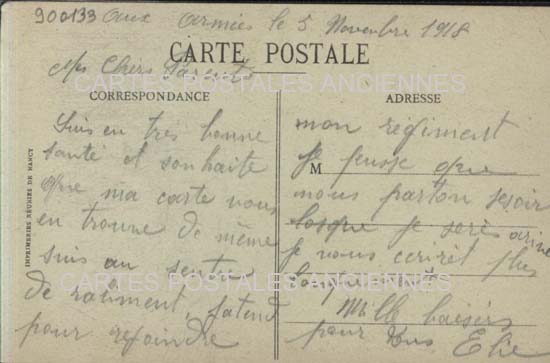 900133 Aux Armées le 5 Novembre 1918
CARTE POSTALE
Mes Chers Parents
CARTES POSTALES ANCIENNES
CORRESPONDANCE
Suis en très bonne
santé et souhaite
que ma carte vous
en trouve de même
suis au
de ratiment, jatend
pour rejoindre
IMPRIMERIES RÉUNIES DE NANCY
ADRESSE
mon régiment
M
Je pense que
nous parton se soir
losque je serè arivé
je vous ecrirèt plus
longuement
Mille baisers
pour tous Elie
CARTES POSTALES ANCIENNES